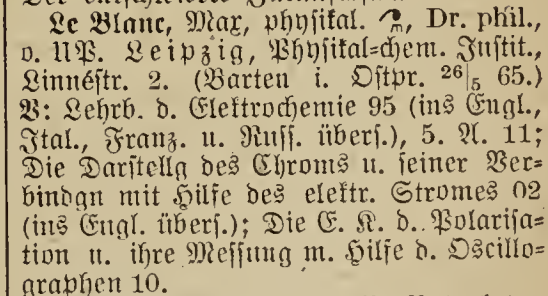 Le Blanc, Max, physikal. Dr. phil.,
o. UP. Leipzig, Physikal=chem. Instit.,
Linnéstr. 2. (Barten i. Ostpr. 26|5 65.)
B: Lehrb. d. Elektrochemie 95 (ins Engl.,
Ital., Franz. u. Russ. übers.), 5. A. 11;
Die Darstellg des Chroms u. seiner Ver=
bindgn mit Hilfe des elektr. Stromes 02
(ins Engl. übers.); Die E. K. d. Polarisa=
tion u. ihre Messung m. Hilfe d. Oscillo=
graphen 10.